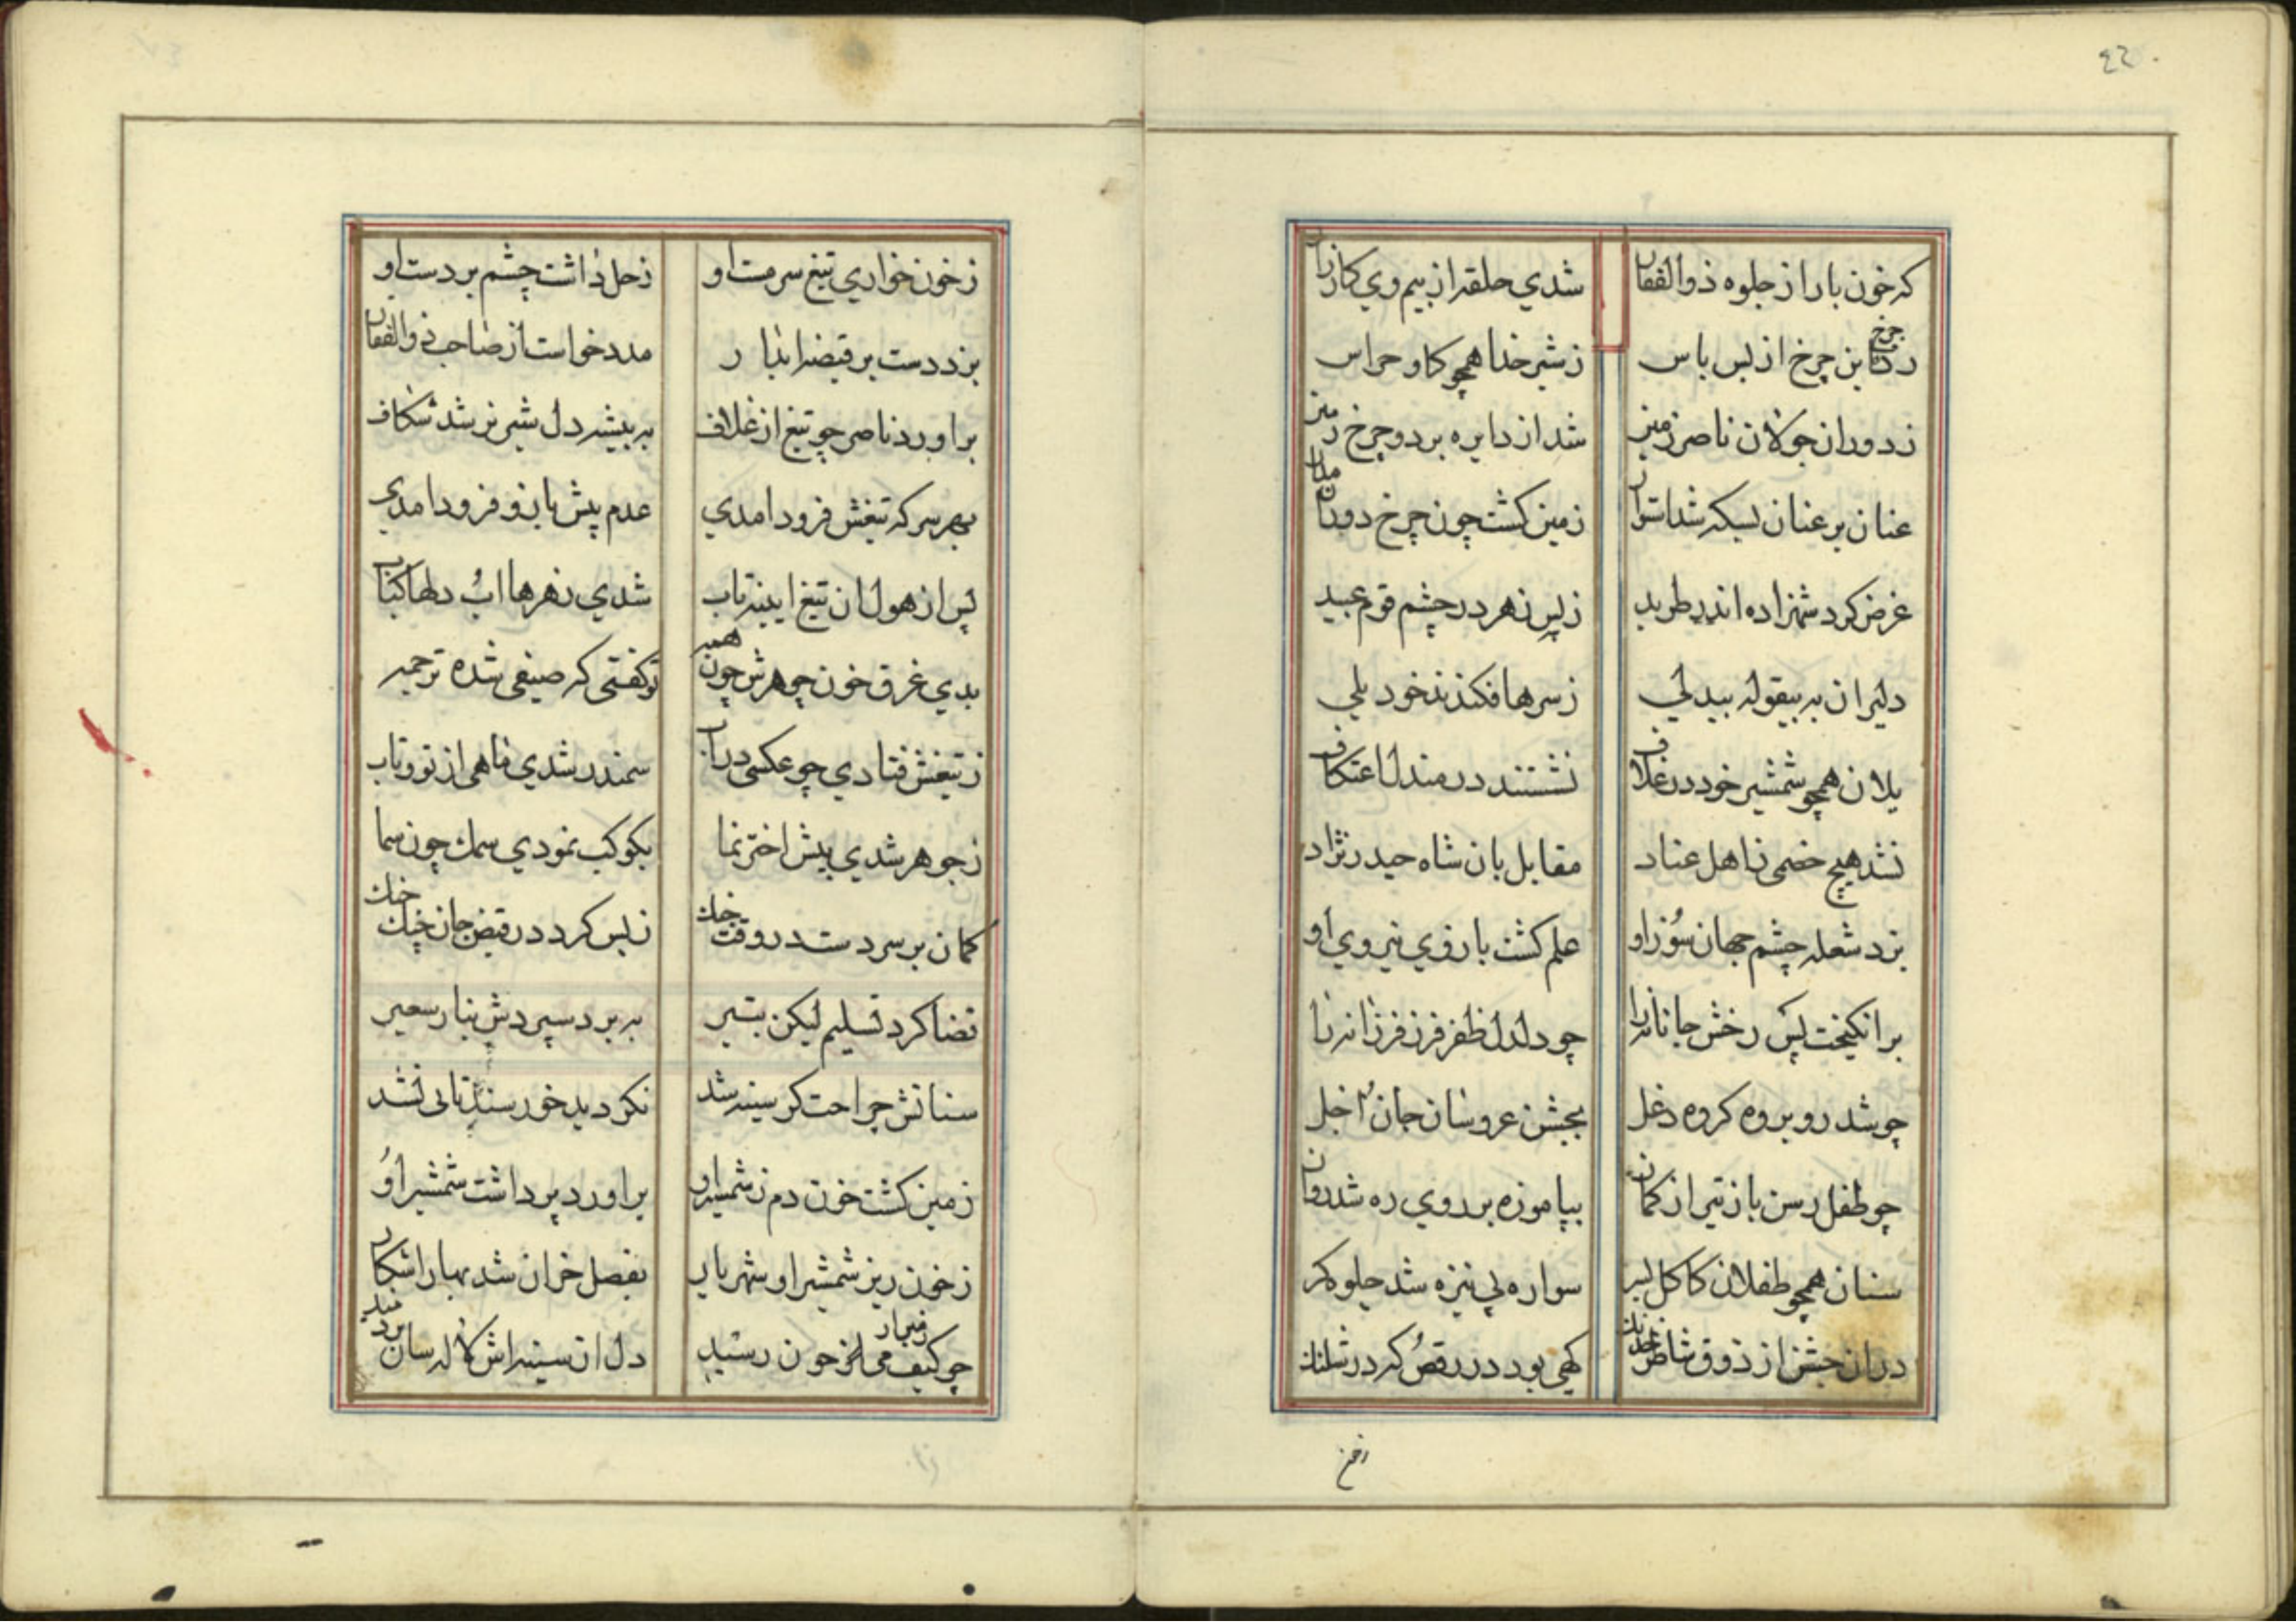 ٤٢
که خون بارد از جلوه ذوالفقار
شدي حلقه از بیم وي کارزار
رده این چرخ از بس باس
ز شیر خدا همچو کاو حراس
ز دوران جولان ناصر زمین
شد از دایره برد و چرخ زمین
عنان بر عنان بسکه شد استوار
زمین کشت چون چرخ دوران مدار
غرض کرد شهزاده اندر طربد
ز پس زهر در چشم قوم عبید
دلیران به بیقوله بیدلي
ز سرها فکندند خود یلي
یلان همچو شمشیر خود در غلاف
نشستند در مندل اعتکاف
نشد هیچ خصمی ز اهل عناد
مقابل بان شاه حیدر نژاد
بزد شعله چشم جهان سوز او
علم کشت بازوي نیروي او
برانکیخت پس رخش جانانه را
چو دلدل ظفر فرز فرزانه را
چو شد روبروه کروه دغل
بجشن عروسان جان اجل
چو طفل رسن باز تیر از کمان
بپا موزه بر روي ره شد روان
سنان همچو طفلان کاکل بسر
سواره پي نیزه شد جلوه کر
دران جشن از ذوق شاطر
کهی بود در رقص کرد در شلنك
زخن
ز خون خواري تیغ سرمست او
زحل داشت چشم بر دست او
بزد دست بر قبضه انبار
مدد خواست از صاحب ذوالفقار
براورد ناصر چو تیغ از غلاف
به بیشه دل شیر نر شد شکاف
بهر سر که تیغش فرود امدي
عدم پیش بازو فرود امدي
پس از هول ان تیغ ایینه تاب
شدي زهرها اب دلها کباب
بدي غرق خون جوهرش چون همه
تو کفتی که صیغی شده ترجمه
ز تیغش فتادي چو عکسی دراب
سمندر شدي ماهی از تو و تاب
ز جوهر شدي پیش اختر نما
بکوکب نمودي سمك چون سما
کمان بر سر دست در وقت جنك
ز بس کرد در قبض جان جنك
قضا کرد تسلیم لیکن بتیر
به برد سپردش بنار سعیر
سنانش جراحت کر سینه شد
نکردید خورسند تانی نشد
زمین کشت خون دم ز شمشیر او
براورد پرداشت شمشیر او
ز خون ریز شمشیر او شهریار
بفصل خزان شد بهار اشکار
چو کیف می از خون رسید
دل از سینه اش لاله سان بردمید